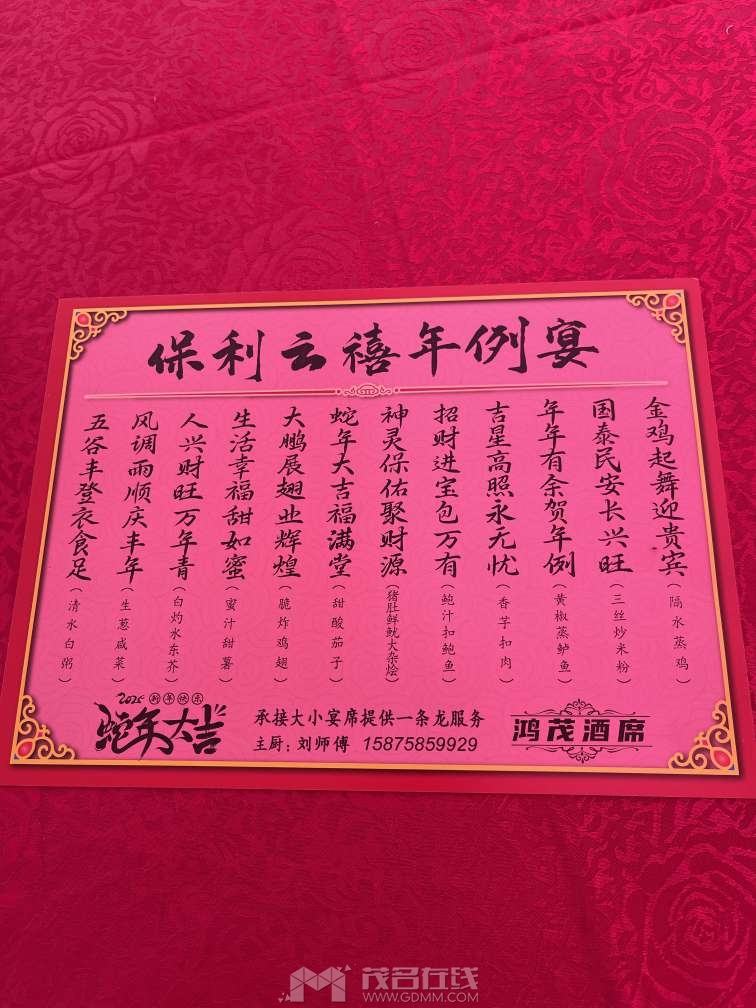 保利云禧年例宴
金鸡起舞迎贵宾（隔水蒸鸡）
国泰民安长兴旺（三丝炒米粉）
年年有余贺年例（黄椒蒸鲈鱼）
吉星高照永无忧（香芋扣肉）
招财进宝包万有（鲍汁扣鲍鱼）
神灵保佑聚财源（猪肚鲜鱿大杂烩）
蛇年大吉福满堂（甜酸茄子）
大鹏展翅业辉煌（脆炸鸡翅）
生活幸福甜如蜜（蜜汁甜薯）
人兴财旺万年青（白灼水东芥）
风调雨顺庆丰年（生葱咸菜）
五谷丰登衣食足（清水白粥）
2025 新年快乐
蛇年大吉
承接大小宴席提供一条龙服务
主厨：刘师傅 15875859929
鸿茂酒席
茂名在线
WWW.GDMM.COM